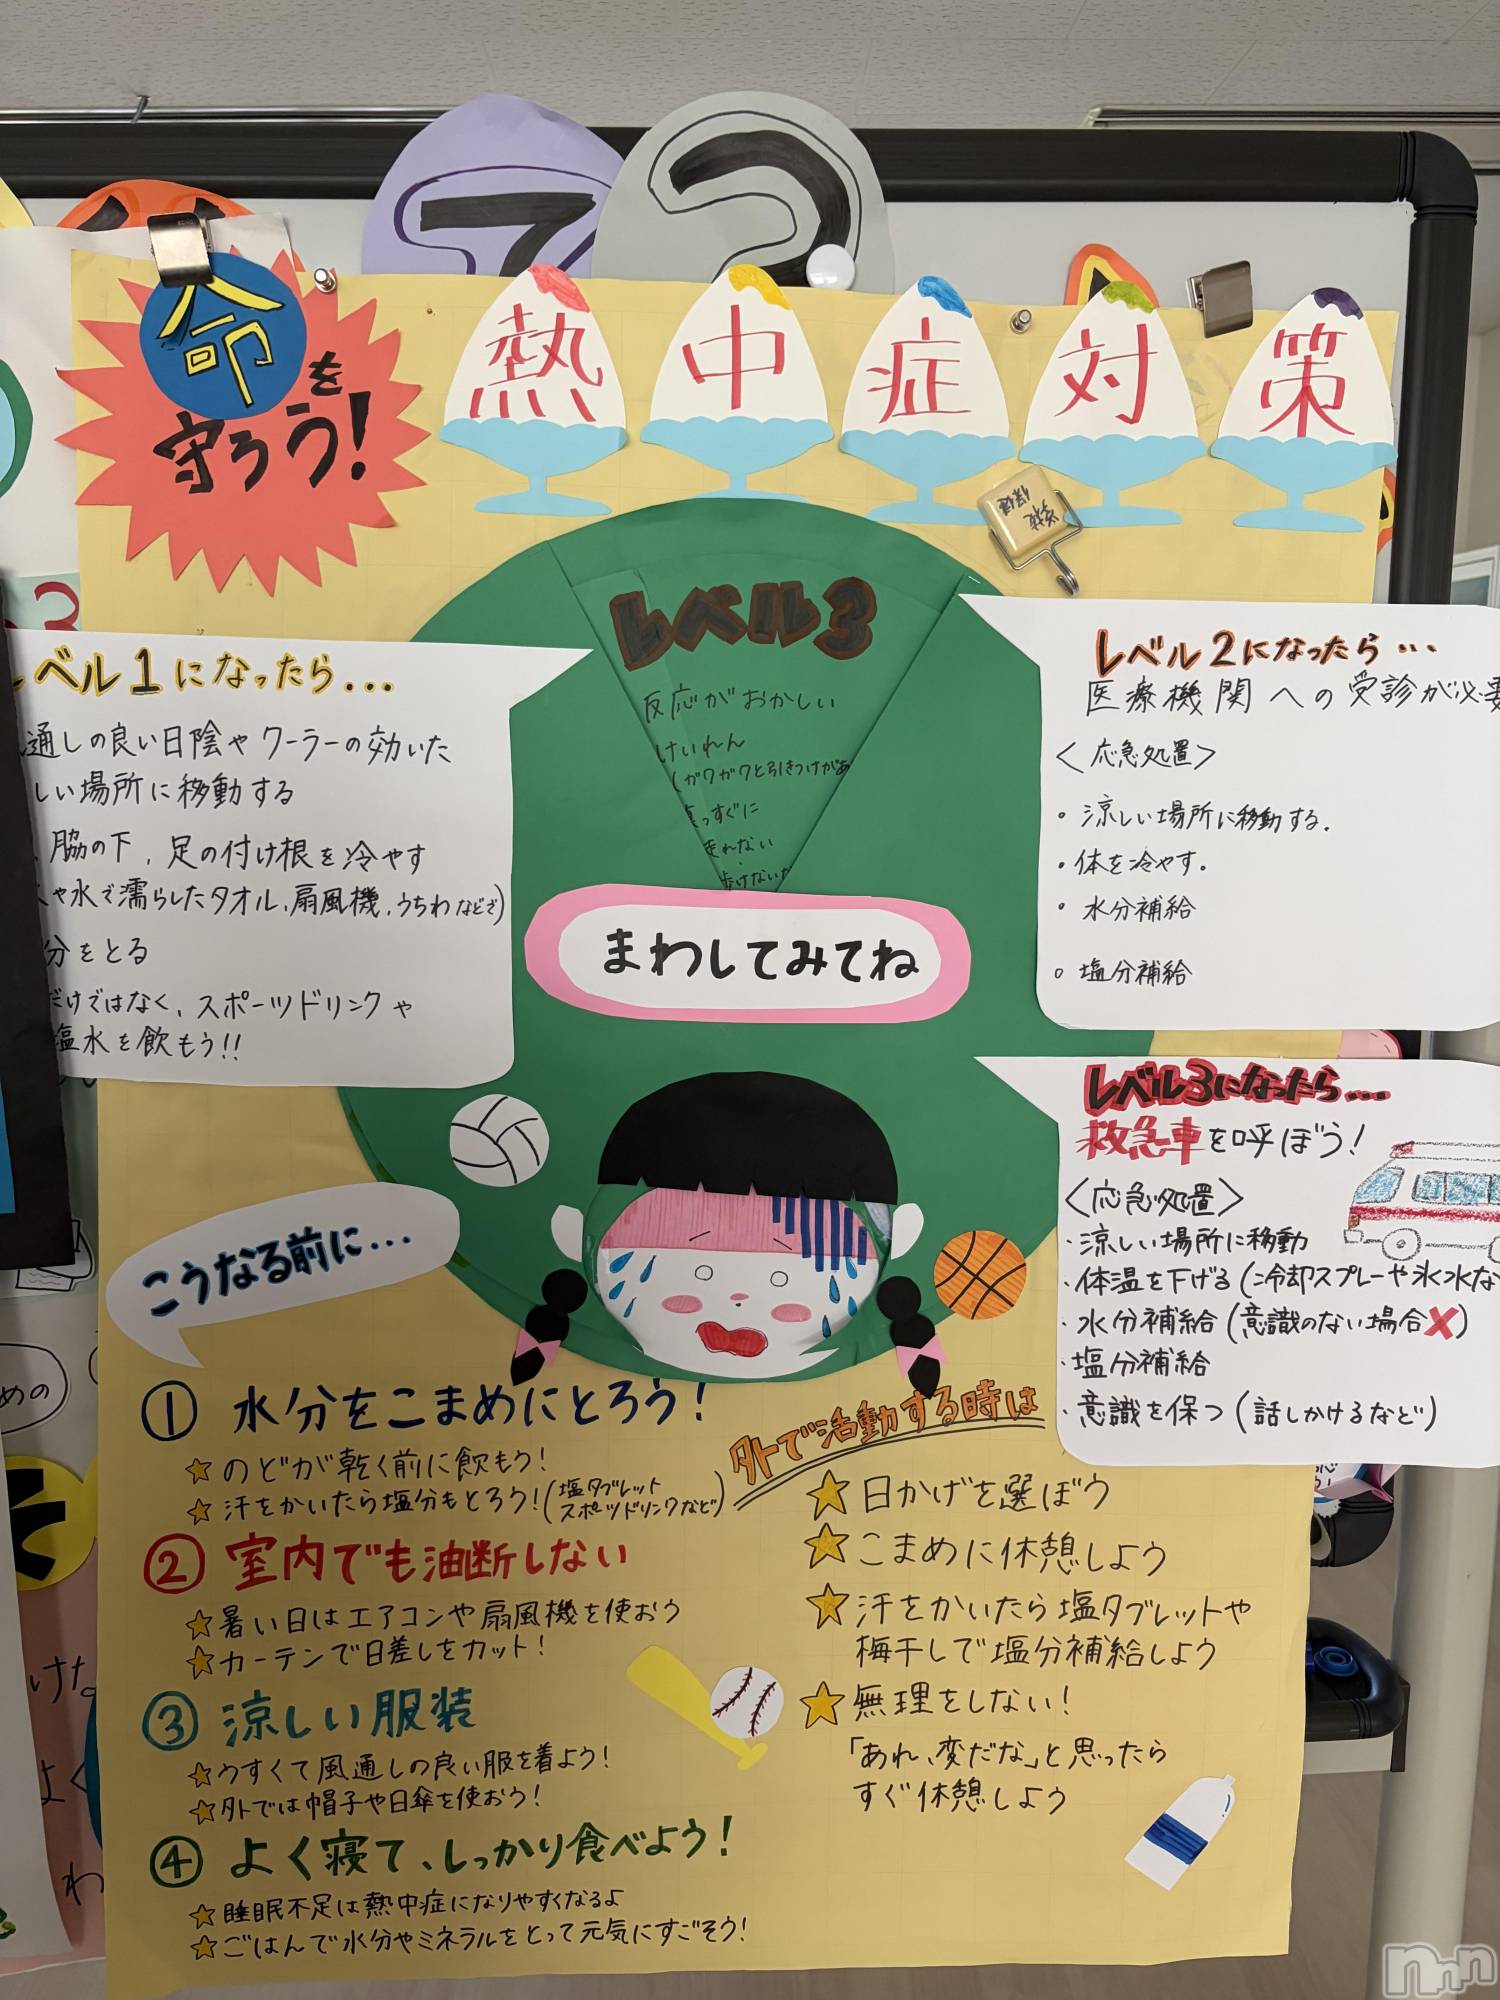 命を
守ろう!
熱中症対策
学校
保健
レベル3
反応がおかしい
けいれん
(ガクガクと引きつけがあ
真っすぐに
走れない
歩けない
まわしてみてね
ベル1になったら...
通しの良い日陰やクーラーの効いた
しい場所に移動する
脇の下,足の付け根を冷やす
や水で濡らしたタオル,扇風機,うちわなどで)
分をとる
だけではなく、スポーツドリンクや
塩水を飲もう!!
レベル2になったら...
医療機関への受診が必要
<応急処置>
・涼しい場所に移動する.
・体を冷やす。
・水分補給
・塩分補給
レベル3になったら...
救急車を呼ぼう!
<応急処置>
・涼しい場所に移動
・体温を下げる(冷却スプレーや氷水な
・水分補給(意識のない場合✗)
・塩分補給
・意識を保つ(話しかけるなど)
こうなる前に...
① 水分をこまめにとろう!
☆のどが乾く前に飲もう!
☆汗をかいたら塩分もとろう!(塩タブレット
スポーツドリンクなど)
② 室内でも油断しない
☆暑い日はエアコンや扇風機を使おう
☆カーテンで日差しをカット!
③ 涼しい服装
☆うすくて風通しの良い服を着よう!
☆外では帽子や日傘を使おう!
④ よく寝て、しっかり食べよう!
☆睡眠不足は熱中症になりやすくなるよ
☆ごはんで水分やミネラルをとって元気にすごそう!
外で活動する時は
☆日かげを選ぼう
☆こまめに休憩しよう
☆汗をかいたら塩タブレットや
梅干しで塩分補給しよう
☆無理をしない!
「あれ、変だな」と思ったら
すぐ休憩しよう
めの
そ
けな
よく
わ
nnn